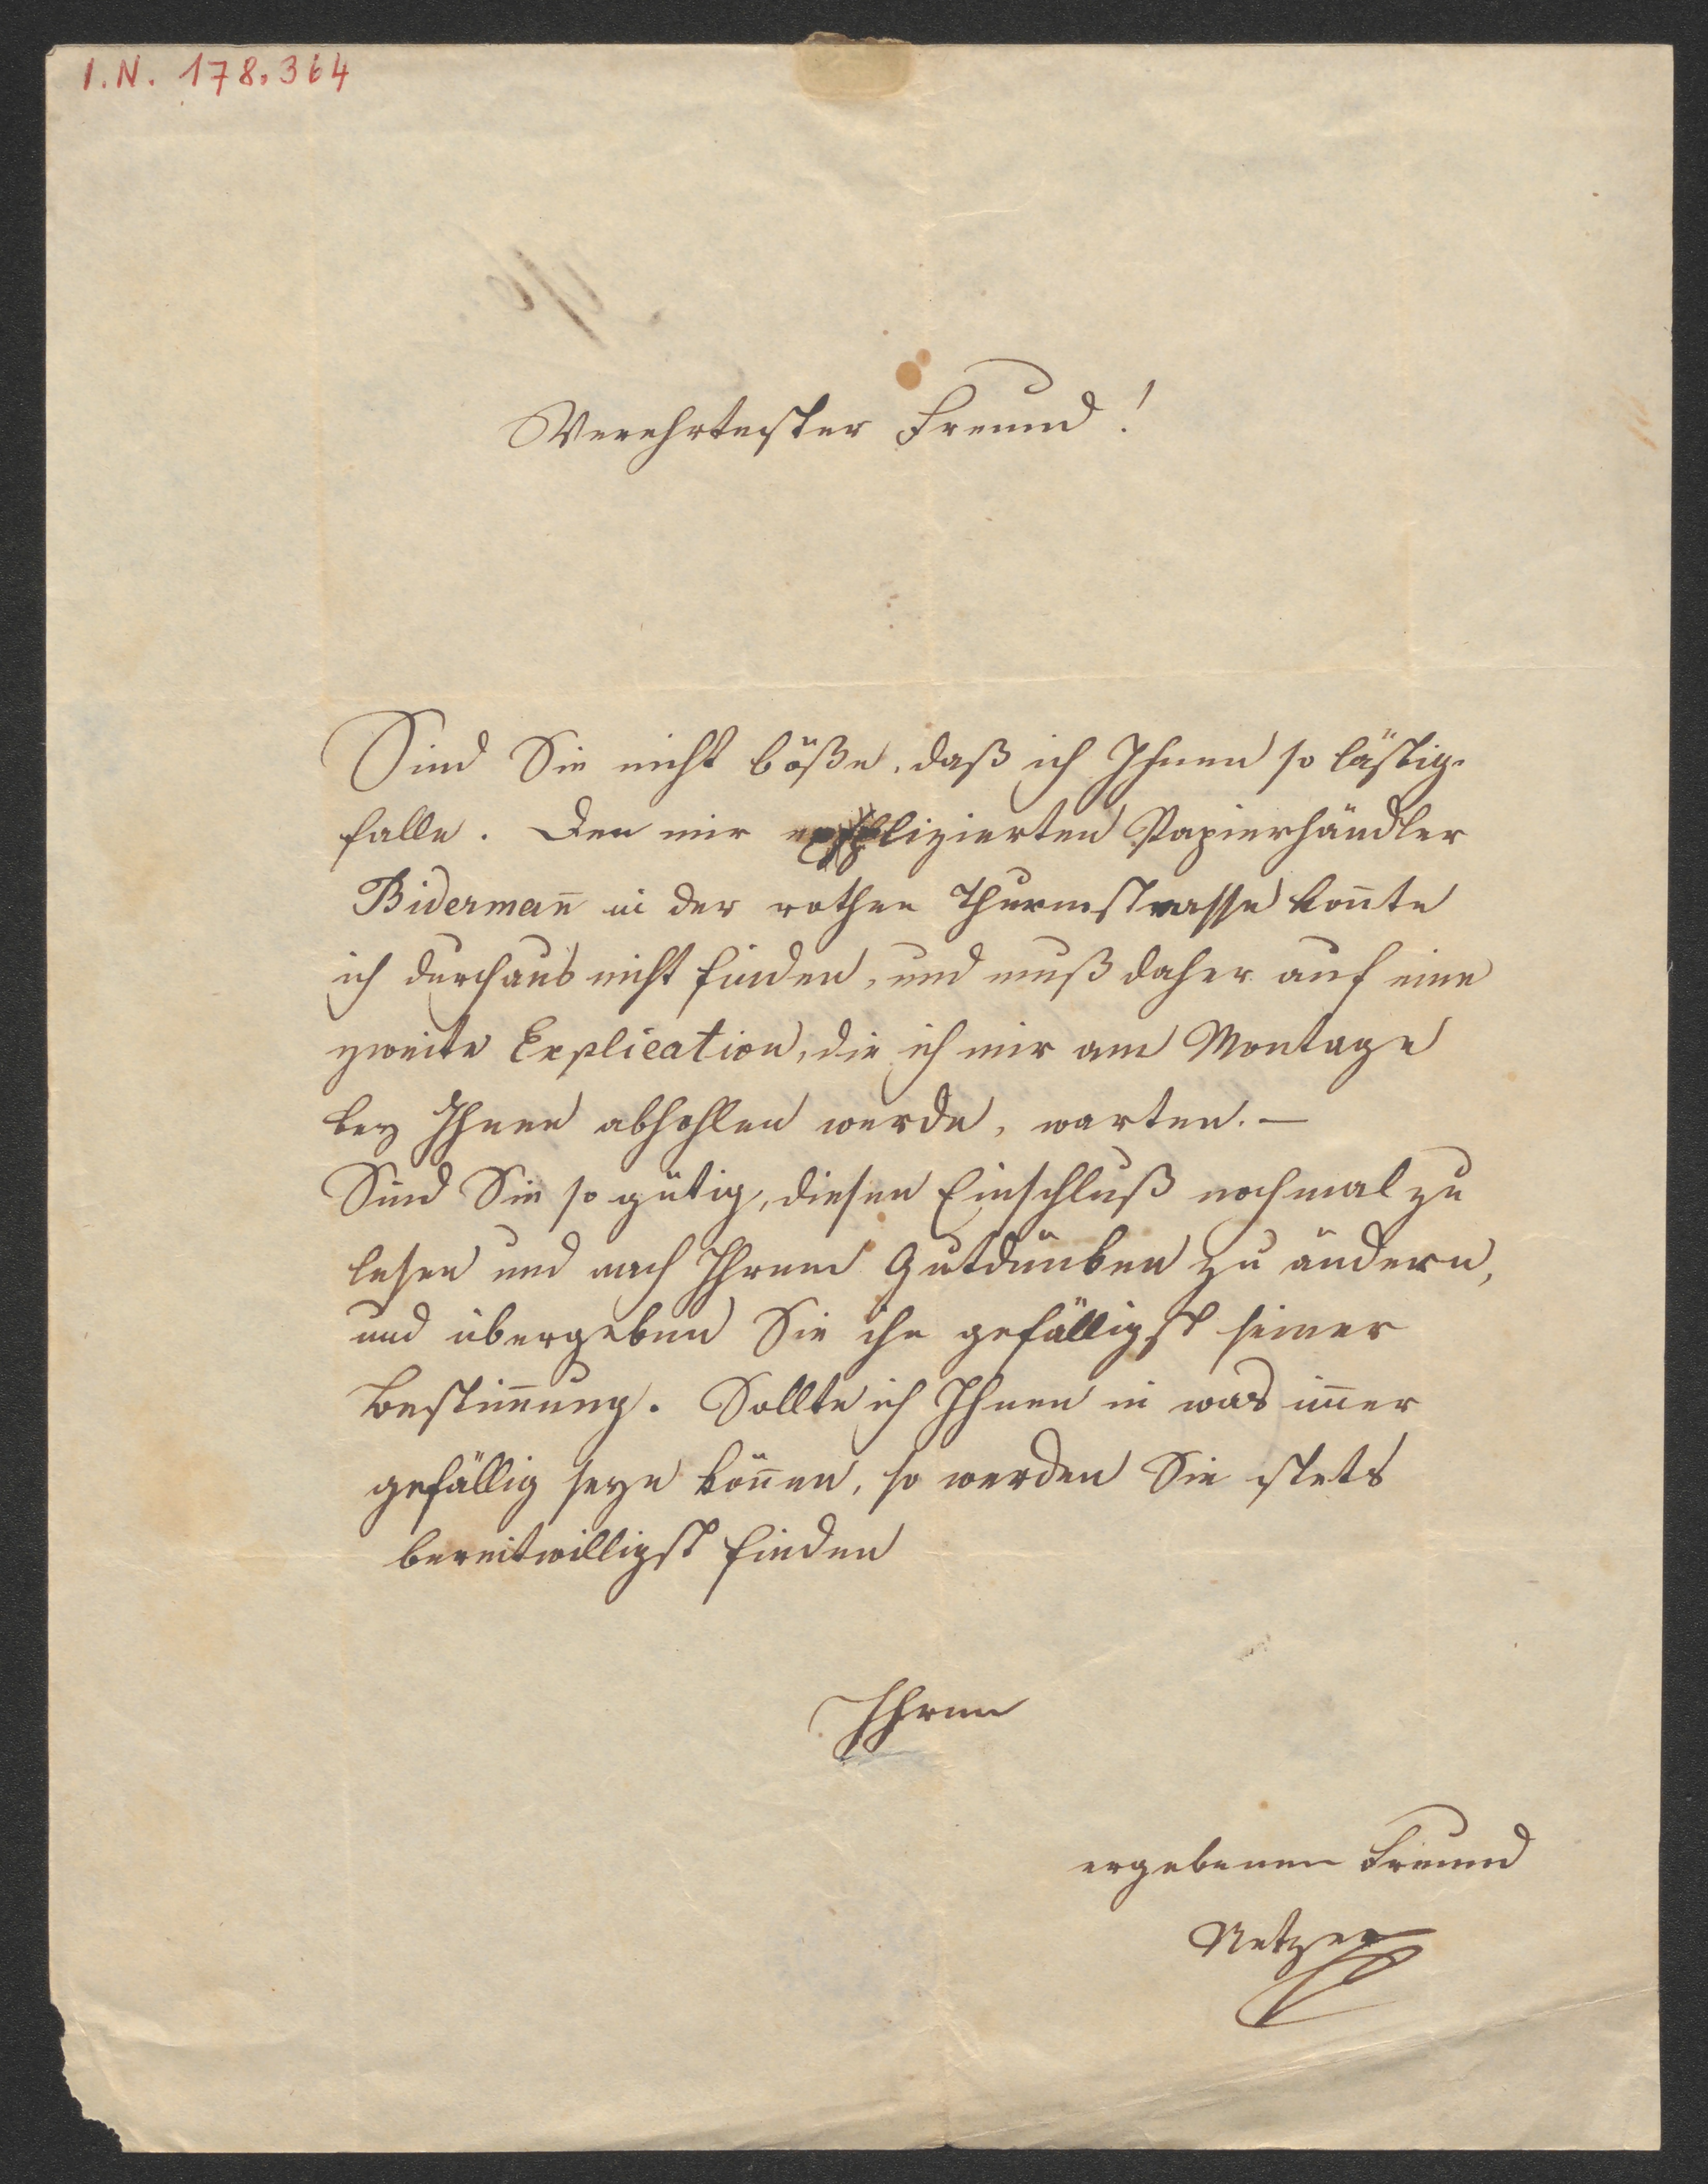 I.N. 178.364
Verehrtester Freund!
Sind Sie nicht böße, daß ich Ihnen so lästig
falle. Den mir explizierten Papierhändler
Bidermañ in der rothen Thurmstrasse koñte
ich durchaus nicht finden, und muß daher auf eine
zweite Explication, die ich mir am Montage
bey Ihnen abhohlen werde, warten. —
Sind Sie so gütig, diesen Einschluß nochmal zu
lesen und nach Ihrem Gutdünken zu ändern,
und übergeben Sie ihn gefälligst seiner
Bestim̄ung. Sollte ich Ihnen in was im̄er
gefällig seyn köñen, so werden Sie stets
bereitwilligst finden
Ihren
ergebenen Freund
Netzer